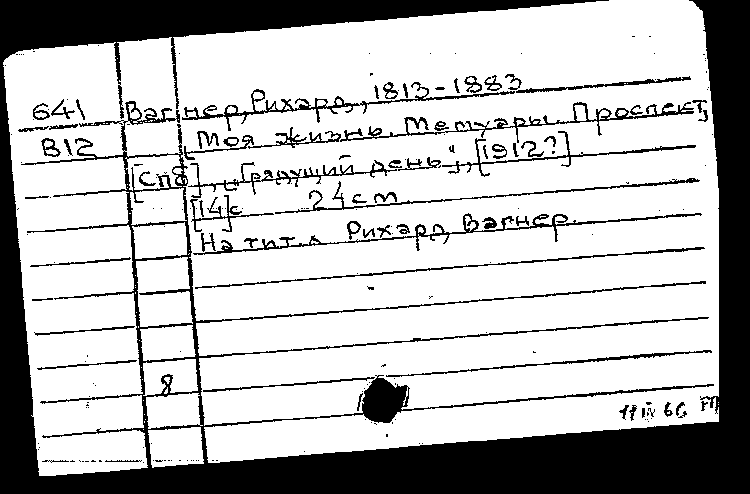 641 Вагнер, Рихард, 1813-1883
В12 Моя жизнь. Мемуары. Проспект,
[Спб], „Грядущий день“, [1912?].
[14]с 24 cm
На тит. л Рихард Вагнер.
8
11 IV 66 ГП